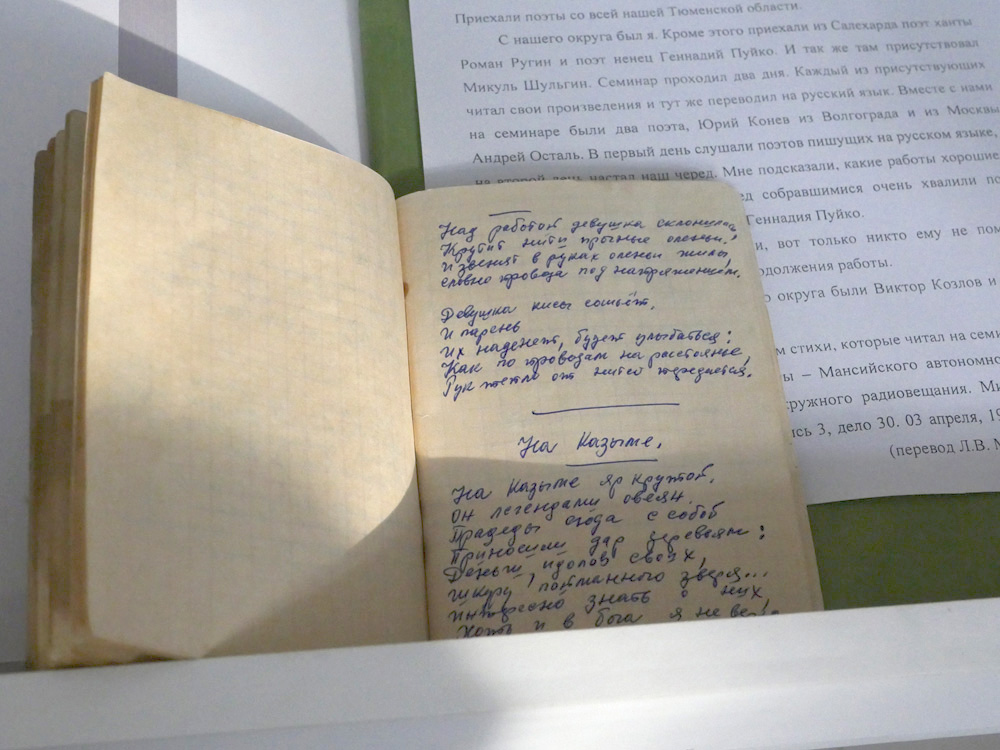 Приехали поэты со всей нашей Тюменской области.
С нашего округа был я. Кроме этого приехали из Салехарда поэт ханты
Роман Ругин и поэт ненец Геннадий Пуйко. И так же там присутствовал
Микуль Шульгин. Семинар проходил два дня. Каждый из присутствующих
читал свои произведения и тут же переводил на русский язык. Вместе с нами
на семинаре были два поэта, Юрий Конев из Волгограда и из Москвы
Андрей Осталь. В первый день слушали поэтов пишущих на русском языке,
на второй день настал наш черед. Мне подсказали, какие работы хорошие
ед собравшимися очень хвалили по
Геннадия Пуйко.
и, вот только никто ему не пом
одолжения работы.
о округа были Виктор Козлов и
м стихи, которые читал на семи
ы – Мансийского автономно
кружного радиовещания. Ми
ись 3, дело 30. 03 апреля, 19
(перевод Л.В. М
Над работой девушка склонилась,
Крутит нити прочные оленьи,
И звенят в руках оленьи жилы,
словно провода под напряженьем.
Девушка кисы сошьёт,
И парень
Их наденет, будет улыбаться:
Как по проводам на расстоянье,
Рук тепло от нитей передается.
На Казыме.
На Казыме яр крутой,
он легендами овеян.
Прадеды сюда с собой
Приносили дар деревьям:
Деньги идолов своих,
шкуру пойманного зверя...
интересно знать о них,
Хоть и в бога я не ве